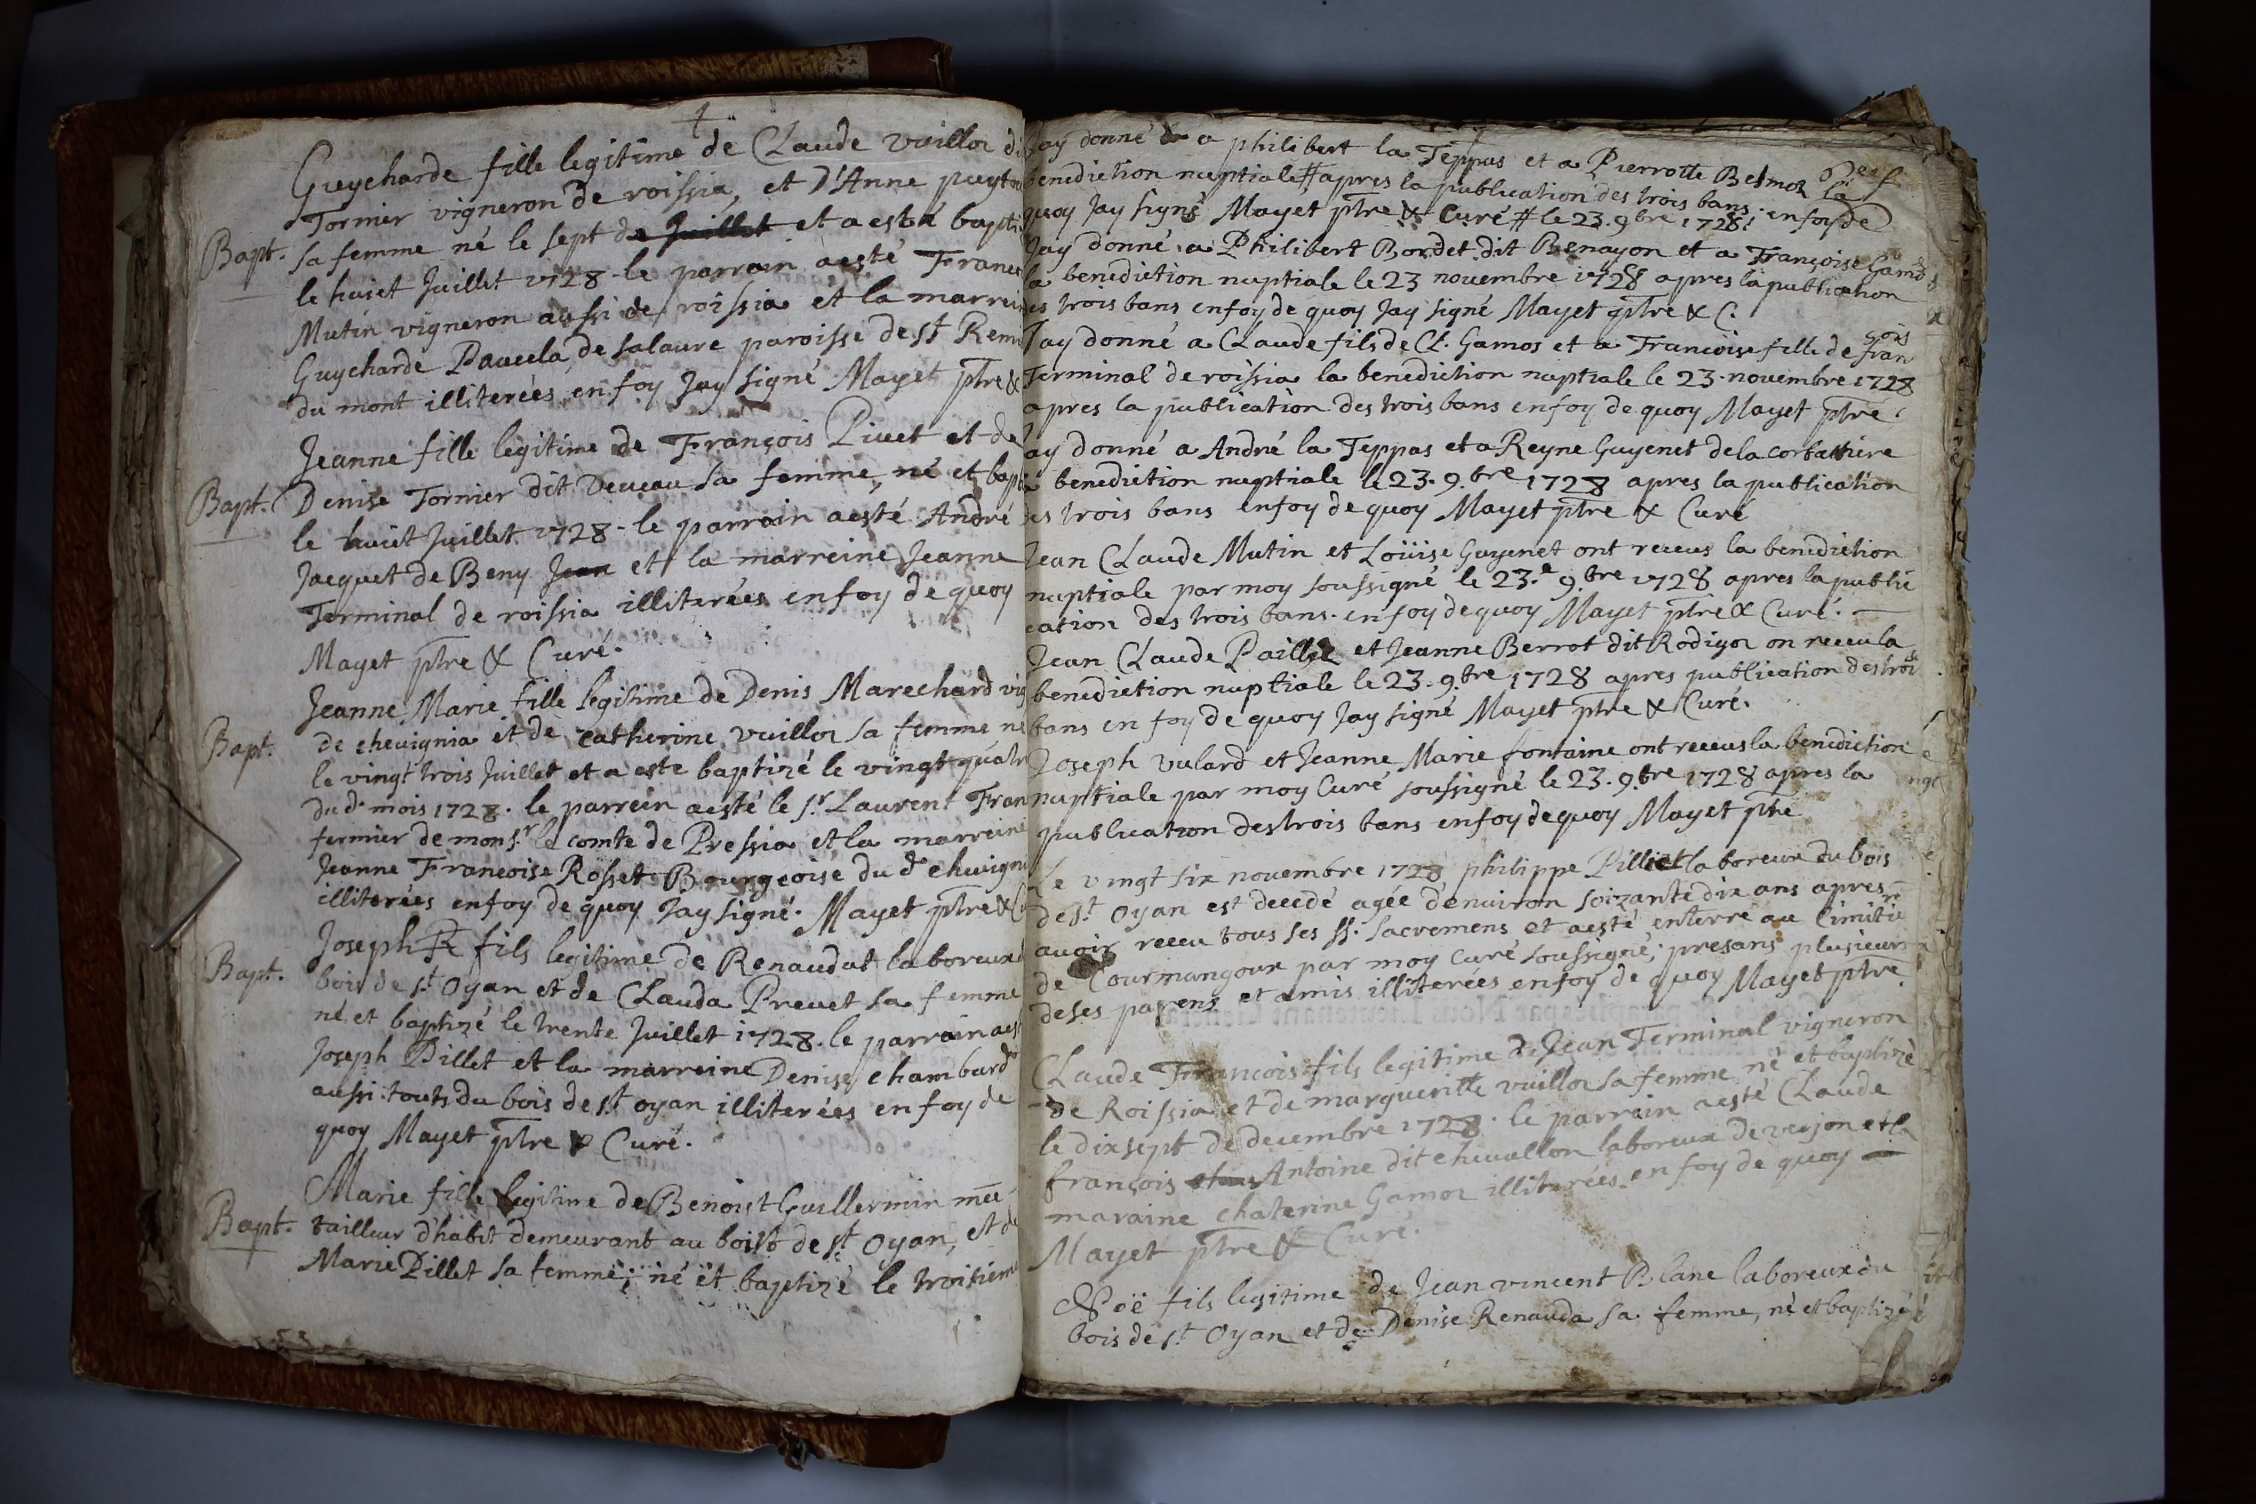 Guycharde fille legitime de Claude vuilloz di
Tornier vigneron de roissia, et d'Anne puyt
Bapt. sa femme né le sept de Juillet et a esté bapti
le huict Juillet 1728. le parrain aesté Franc
Mutin vigneron aussi de roissia et la marrein
Guycharde de salaure paroisse de st Remi
du mont illiterées en foy Jay signé Mayet ptre &
Jeanne fille legitime de François Pivet et de
Bapt. Denise Tornier dit Veveau sa femme, né et bapti
le huict Juillet 1728. le parrain aesté André
Jacquet de Beny Jean et la marreine Jeanne
Terminal de roissia illiterées en foy de quoy
Mayet ptre & Curé.
Jeanne Marie fille legitime de Denis Marechard vig
Bapt. de chevignia et de catherine vuilloz sa femme né
le vingt trois Juillet et a este baptizé le vingt quatr
du d. mois 1728. le parrein aesté le sr. Laurent Fran
fermier de monsr le comte de Pressia et la marreine
Jeanne Francoise Rosset Bourgeoise du d chevigni
illiterées enfoy de quoy Jay signé. Mayet ptre & C
Joseph fils legitime de Renaudat laboreux
Bapt. bois de st Oyan et de Clauda Prevet sa femme
né et baptizé le trente Juillet 1728. le parrain aes
Joseph Pillet et la marreine Denise chambard
aussi touts du bois de st oyan illiterées en foy de
quoy Mayet ptre & Curé.
Marie fille legitime de Benoist Guillermin me
Bapt. tailleur d'habit demeurant au boist de st Oyan, et d
Marie Pillet sa femme; né et baptizé le troisiem
Jay donné a philibert la Teppas et a Pierrotte Besmoz la
benediction nuptiale # apres la publication des trois bans. en foy de
quoy Jay signé Mayet ptre & Curé # le 23. 9bre 1728.
Jay donné a Philibert Bordet dit Benayon et a Françoise Gamos
la benediction nuptiale le 23 novembre 1728 apres la publication
des trois bans enfoy de quoy Jay signé Mayet ptre & C.
Jay donné a Claude fils de Cl. Gamos et a Francoise fille de fran
sois
Terminal de roissia la benediction nuptiale le 23. novembre 1728
apres la publication des trois bans enfoy de quoy Mayet ptre
Jay donné a André la Teppas et a Reyne Guyenet de la corbattiere
la benediction nuptiale le 23. 9.bre 1728 apres la publication
des trois bans enfoy de quoy Mayet ptre & Curé
Jean Claude Mutin et Loüise Guyenet ont receus la benediction
nuptiale par moy soussigné le 23.e 9.bre 1728 apres la publi
cation des trois bans. en foy de quoy Mayet ptre & Curé.
Jean Claude et Jeanne Berrot dit Rodigoz on receu la
benediction nuptiale le 23. 9.bre 1728 apres publication des trois
bans en foy de quoy Jay signé Mayet ptre & Curé.
Joseph vulard et Jeanne Marie fontaine ont receus la benediction
nuptiale par moy Curé soussigné le 23. 9.bre 1728 apres la
publication des trois bans enfoy de quoy Mayet ptre
Le vingt six novembre 1728 philippe Pilliet laboreux du bois
de st Oyan est decedé agée d'environ soizante dix ans apres
avoir receu tous ses ss. sacremens et aesté enterré au Cimitie
de Courmangoux par moy curé soussigné; presans plusieurs
de ses parens et amis illiterées enfoy de quoy Mayet ptre
Claude François fils legitime de Jean Terminal vigneron
de Roissia et de margueritte vuilloz sa femme né et baptizé
le dixsept de decembre 1728. le parrein aesté Claude
françois Antoine dit chevallon laboreux de verjon et la
maraine chaterine Gamoz illiterées. en foy de quoy
Mayet ptre & Curé.
fils legitime de Jean vincent Blanc laboreux du
bois de st Oyan et de Denise Renauda sa femme, né et baptizé